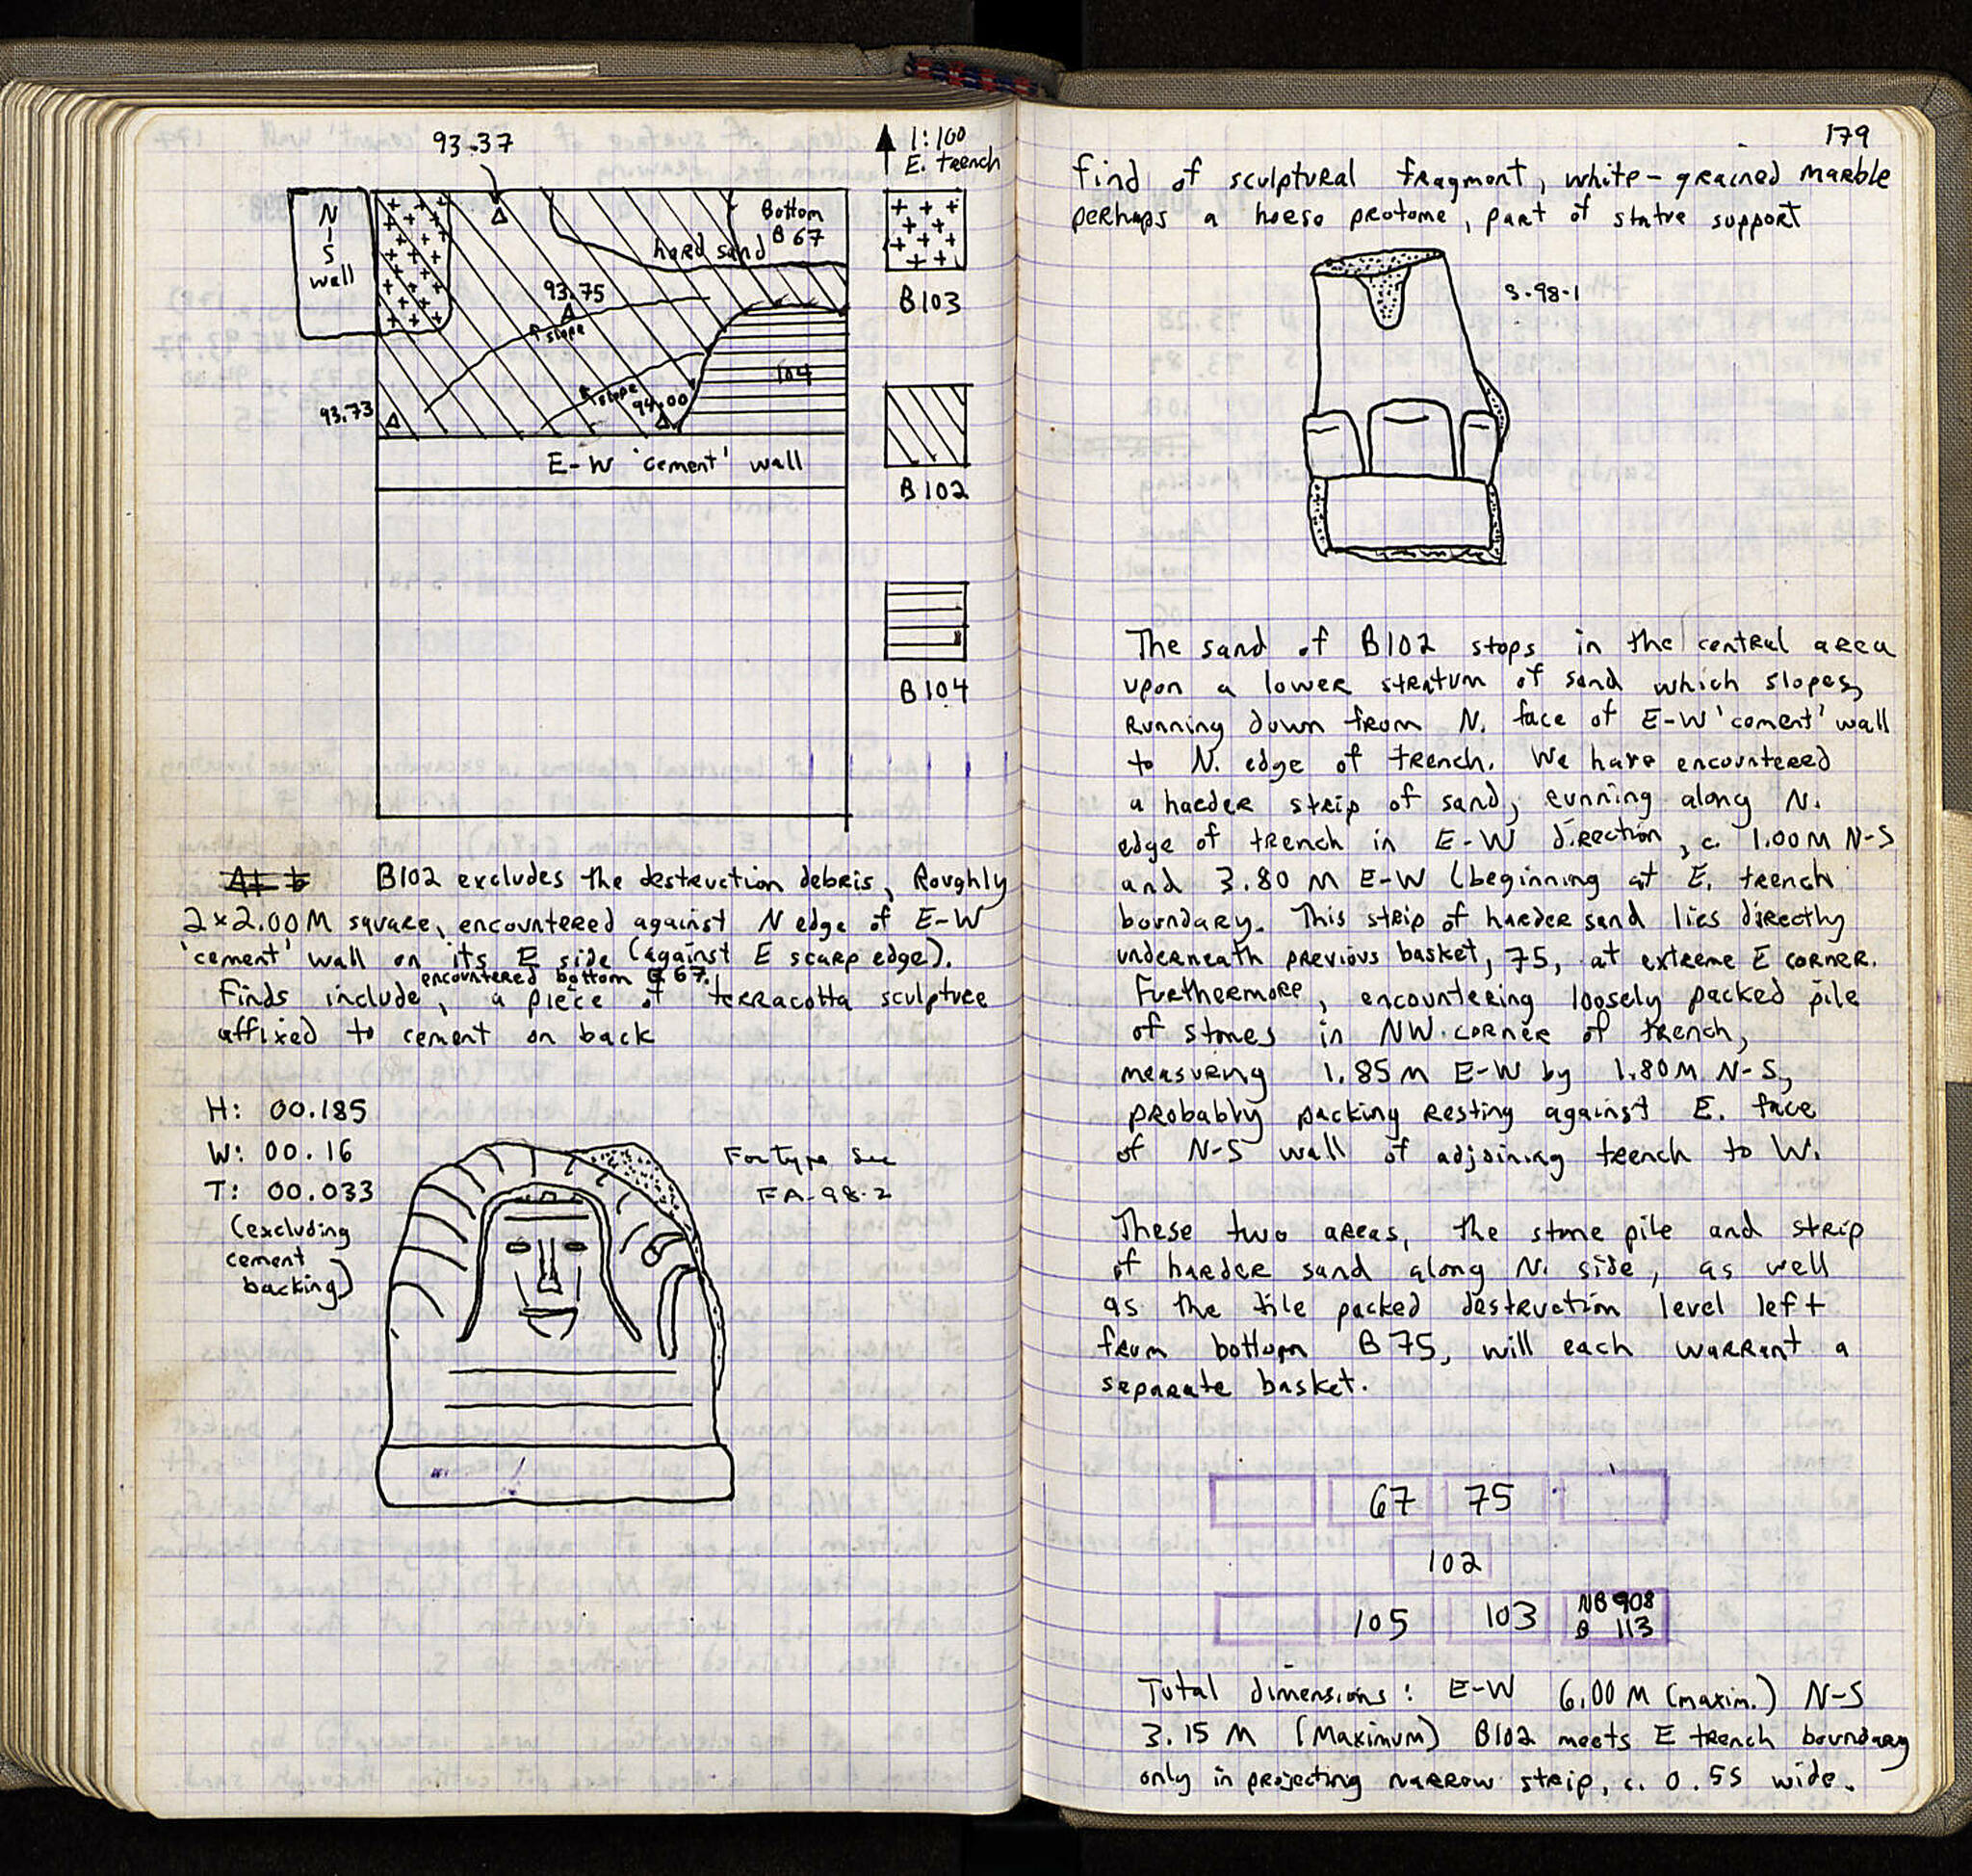 93.37
1:100
E. trench
N-S wall
Bottom
B 67
hard sand
B103
93.75
slope
104
slope
94.00
93.73
E-W 'cement' wall
B 102
B 104
B102 excludes the destruction debris, Roughly
2 x 2.00 M square, encountered against N edge of E-W
'cement' wall on its E side (against E scarp edge).
encountered bottom B 67.
Finds include, a piece of terracotta sculpture
affixed to cement on back
H: 00.185
W: 00.16
T: 00.033
(excluding
cement
backing)
For type see
FA-98-2
179
find of sculptural fragment, white-grained marble
perhaps a horse protome, part of statue support
S-98-1
The sand of B102 stops in the central area
upon a lower stratum of sand which slopes,
running down from N. face of E-W 'cement' wall
to N. edge of trench. We have encountered
a harder strip of sand, running along N.
edge of trench in E-W direction, c. 1.00M N-S
and 3.80 M E-W (beginning at E. trench
boundary. This strip of harder sand lies directly
underneath previous basket, 75, at extreme E corner.
Furthermore, encountering loosely packed pile
of stones in NW. corner of trench,
measuring 1.85 M E-W by 1.80 M N-S,
probably packing resting against E. face
of N-S wall of adjoining trench to W.
These two areas, the stone pile and strip
of harder sand along N. side, as well
as the tile packed destruction level left
from bottom B 75, will each warrant a
separate basket.
67 75
102
105 103 NB 908
B 113
Total dimensions: E-W 6.00 M (maxim.) N-S
3.15 M (Maximum) B102 meets E trench boundary
only in projecting narrow strip, c. 0.55 wide.